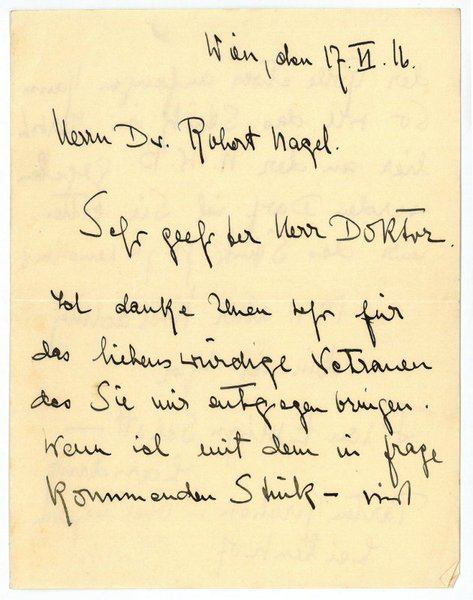 Wien, den 17. VI. 16.
Herrn Dr. Robert Nagel.
Sehr geehrter Herr Doktor.
Ich danke Ihnen sehr für
das liebenswürdige Vertrauen
das Sie mir entgegen bringen.
Wenn ich mit dem in frage
Kommenden Stück –